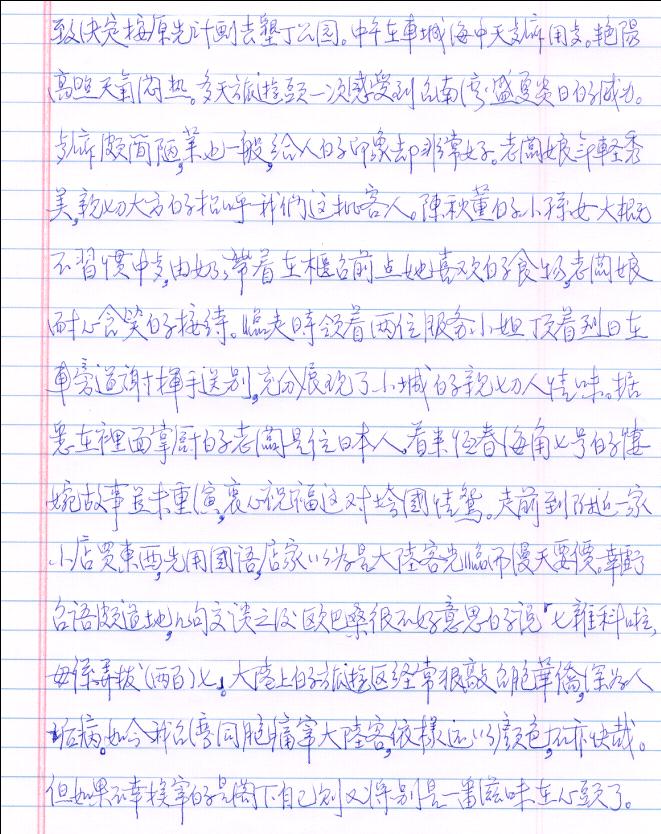 致決定按原先计划去墾丁公园。中午在車城海中天餐廳用支。艳陽
高照天氣闷热。多天旅遊頭一次感受到台南湾盛夏炎日的威力。
餐廳頗簡陋,菜也一般,给人的印象却非常好。老闆娘年輕秀
美,親切大方的招呼我們这批客人。陳秋董的小孫女大概
不習慣中食,由奶奶帶着在櫃台前点她喜欢的食物,老闆娘
耐心含笑的接待。臨走時领着两位服务小姐頂着烈日在
車旁道謝揮手送别,充分展现了小城的親切人情味。据
悉在裡面掌厨的老闆是位日本人。看来恆春海角七号的悽
婉故事並未重演,衷心祝福这对垮國情鴛。走前到附近一家
小店買東西,先用國語,店家以为是大陸客光臨而漫天要價。幸虧
台语頗道地,几句交谈之後欧巴桑很不好意思的说「七離科啦,
毋係弄拔(两百)七」。大陸上的旅遊区経常狠敲台胞華僑,深为人
垢病。如今我台湾同胞痛宰大陸客,依樣还以顏色,不亦快哉。
但如果不幸挨宰的是閣下自己,则又将别是一番滋味在心頭了。